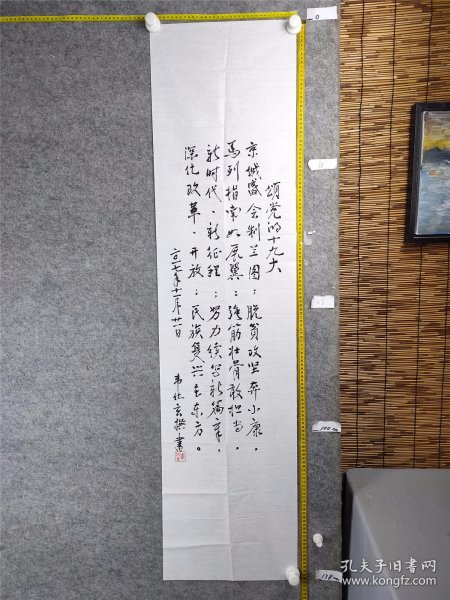 颂党的十九大
京城盛会制兰图；脱贫攻坚奔小康，
马列指南如展翼；强筋壮骨敢担当，
新时代、新征程；努力续写新篇章，
深化改革、开放；民族复兴在东方。
二〇一七年十一月廿一日
韦仕玄撰书
0
100 cm
138 cm
孔夫子旧书网
www.kongfz.com